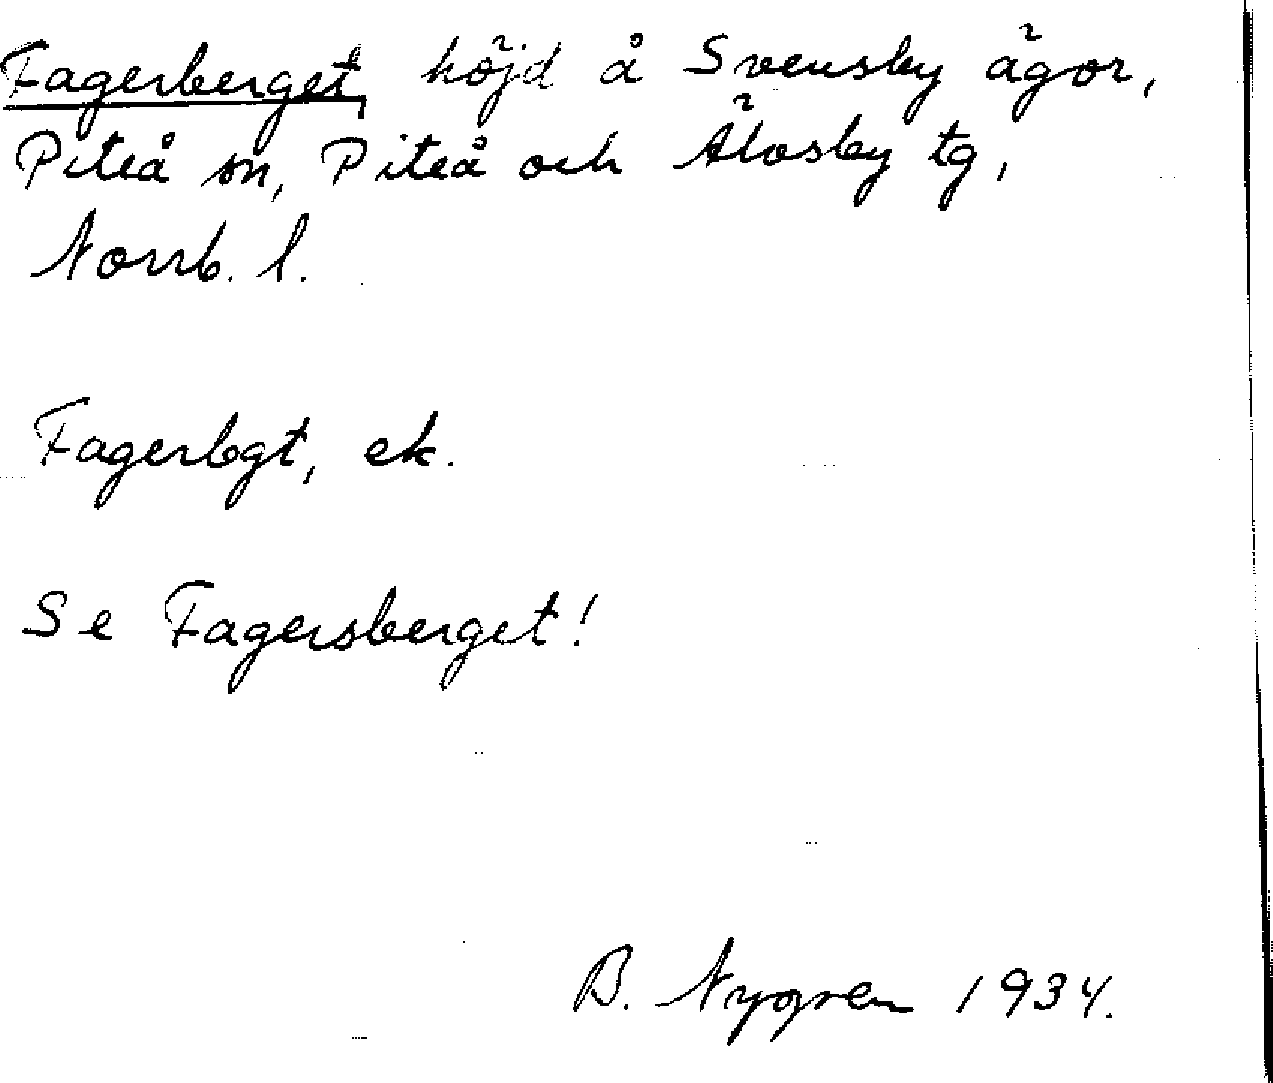 Fagerberget, höjd å Svensby ägor,
Piteå sn, Piteå och Älvsby tg,
Norrb. l.
Fagerbgt, ek.
Se Fagersberget!
B. Nygren 1934.